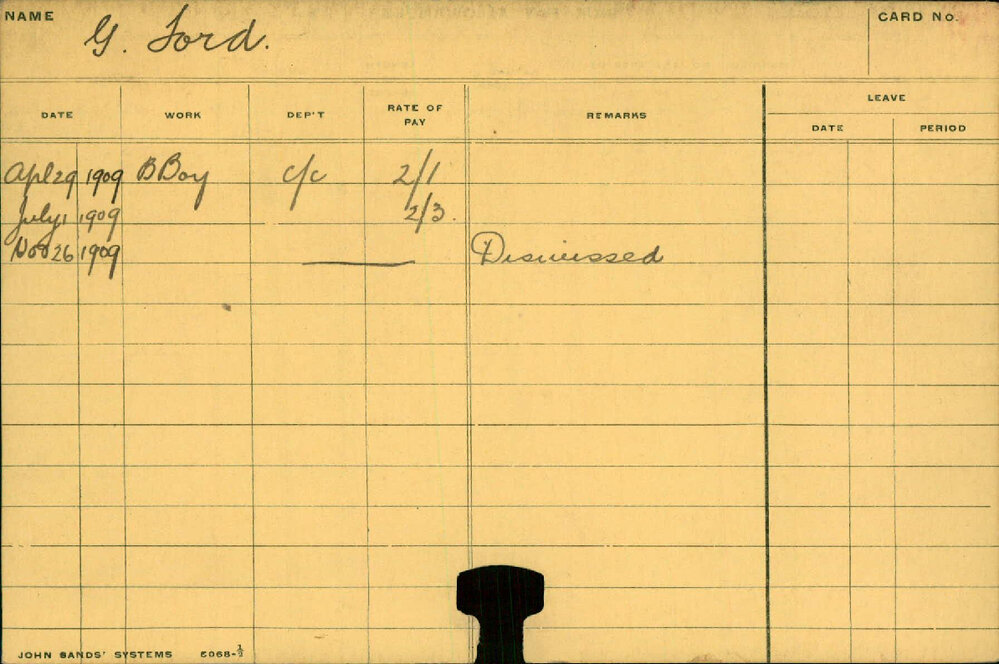 NAME G. Ford. CARD No.
LEAVE
DATE WORK DEP'T RATE OF PAY REMARKS DATE PERIOD
Apl 29 1909 B Boy c/c 2/1
July 1 1909 2/3.
Nov 26 1909 Dismissed
JOHN SANDS' SYSTEMS 6068-½